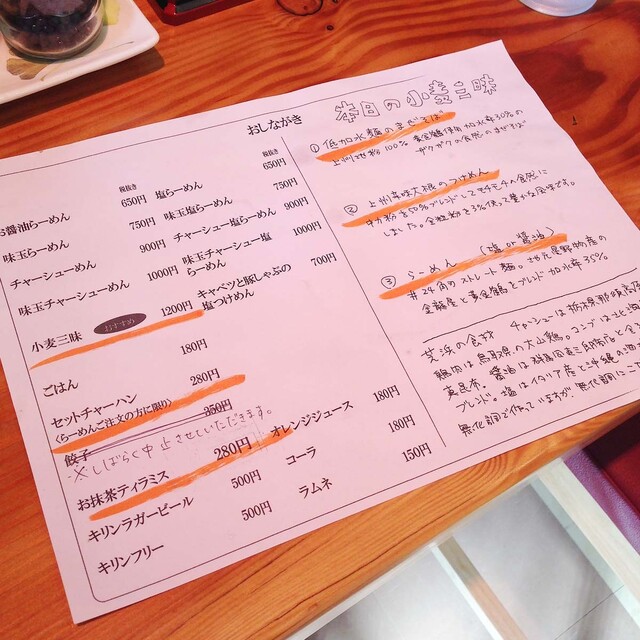 おしながき
税抜き
お醤油らーめん 650円
味玉らーめん 750円
チャーシューめん 900円
味玉チャーシューめん 1000円
小麦三昧 おすすめ 1200円
ごはん 180円
セットチャーハン 280円
(らーめんご注文の方に限り)
餃子 350円
※しばらく中止させていただきます。
お抹茶ティラミス 280円
キリンラガービール 500円
キリンフリー 500円
税抜き
塩らーめん 650円
味玉塩らーめん 750円
チャーシュー塩らーめん 900円
味玉チャーシュー塩
らーめん 1000円
キャベツと豚しゃぶの
塩つけめん 700円
オレンジジュース 180円
コーラ 180円
ラムネ 150円
本日の小麦三昧
① 低加水麺のまぜそば
上州地粉100% 黄金鶴使用 加水率30%の
ザクザクの食感のまぜそば
②
つけめん
しました。全粒粉を3%使って豊かな風味です。
③ らーめん (塩or醤油)
#24角のストレート麺。
黄金鶴をブレンド 加水率35%
鶏肉は鳥取県の大山鶏。コンブは
真昆布。醤油は
ブレンド。塩はイタリア産と沖縄の
無化調で作っていますが